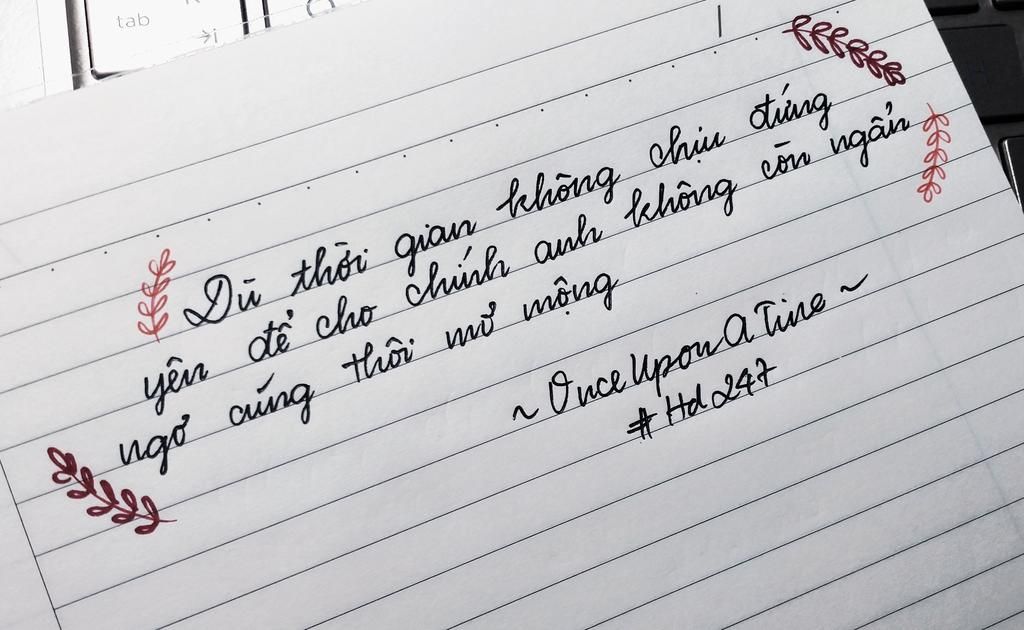 tab
Dù thời gian không chịu đứng
yên để cho chính anh không còn ngẩn
ngơ cứng thôi mơ mộng
~ Once Upon A Time ~
#Hd247